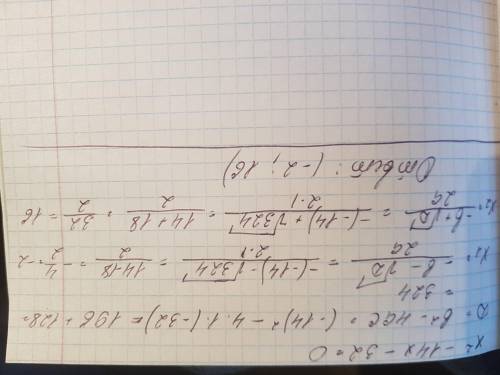 x² - 14x - 32 = 0
D = b² - 4ac = (-14)² - 4·1·(-32) = 196 + 128 =
= 324
x₁ = -b-√D / 2a = -(-14)-√324 / 2·1 = 14-18 / 2 = -4/2 = -2
x₂ = -b+√D / 2a = -(-14)+√324 / 2·1 = 14+18 / 2 = 32/2 = 16
Ответ: (-2; 16)